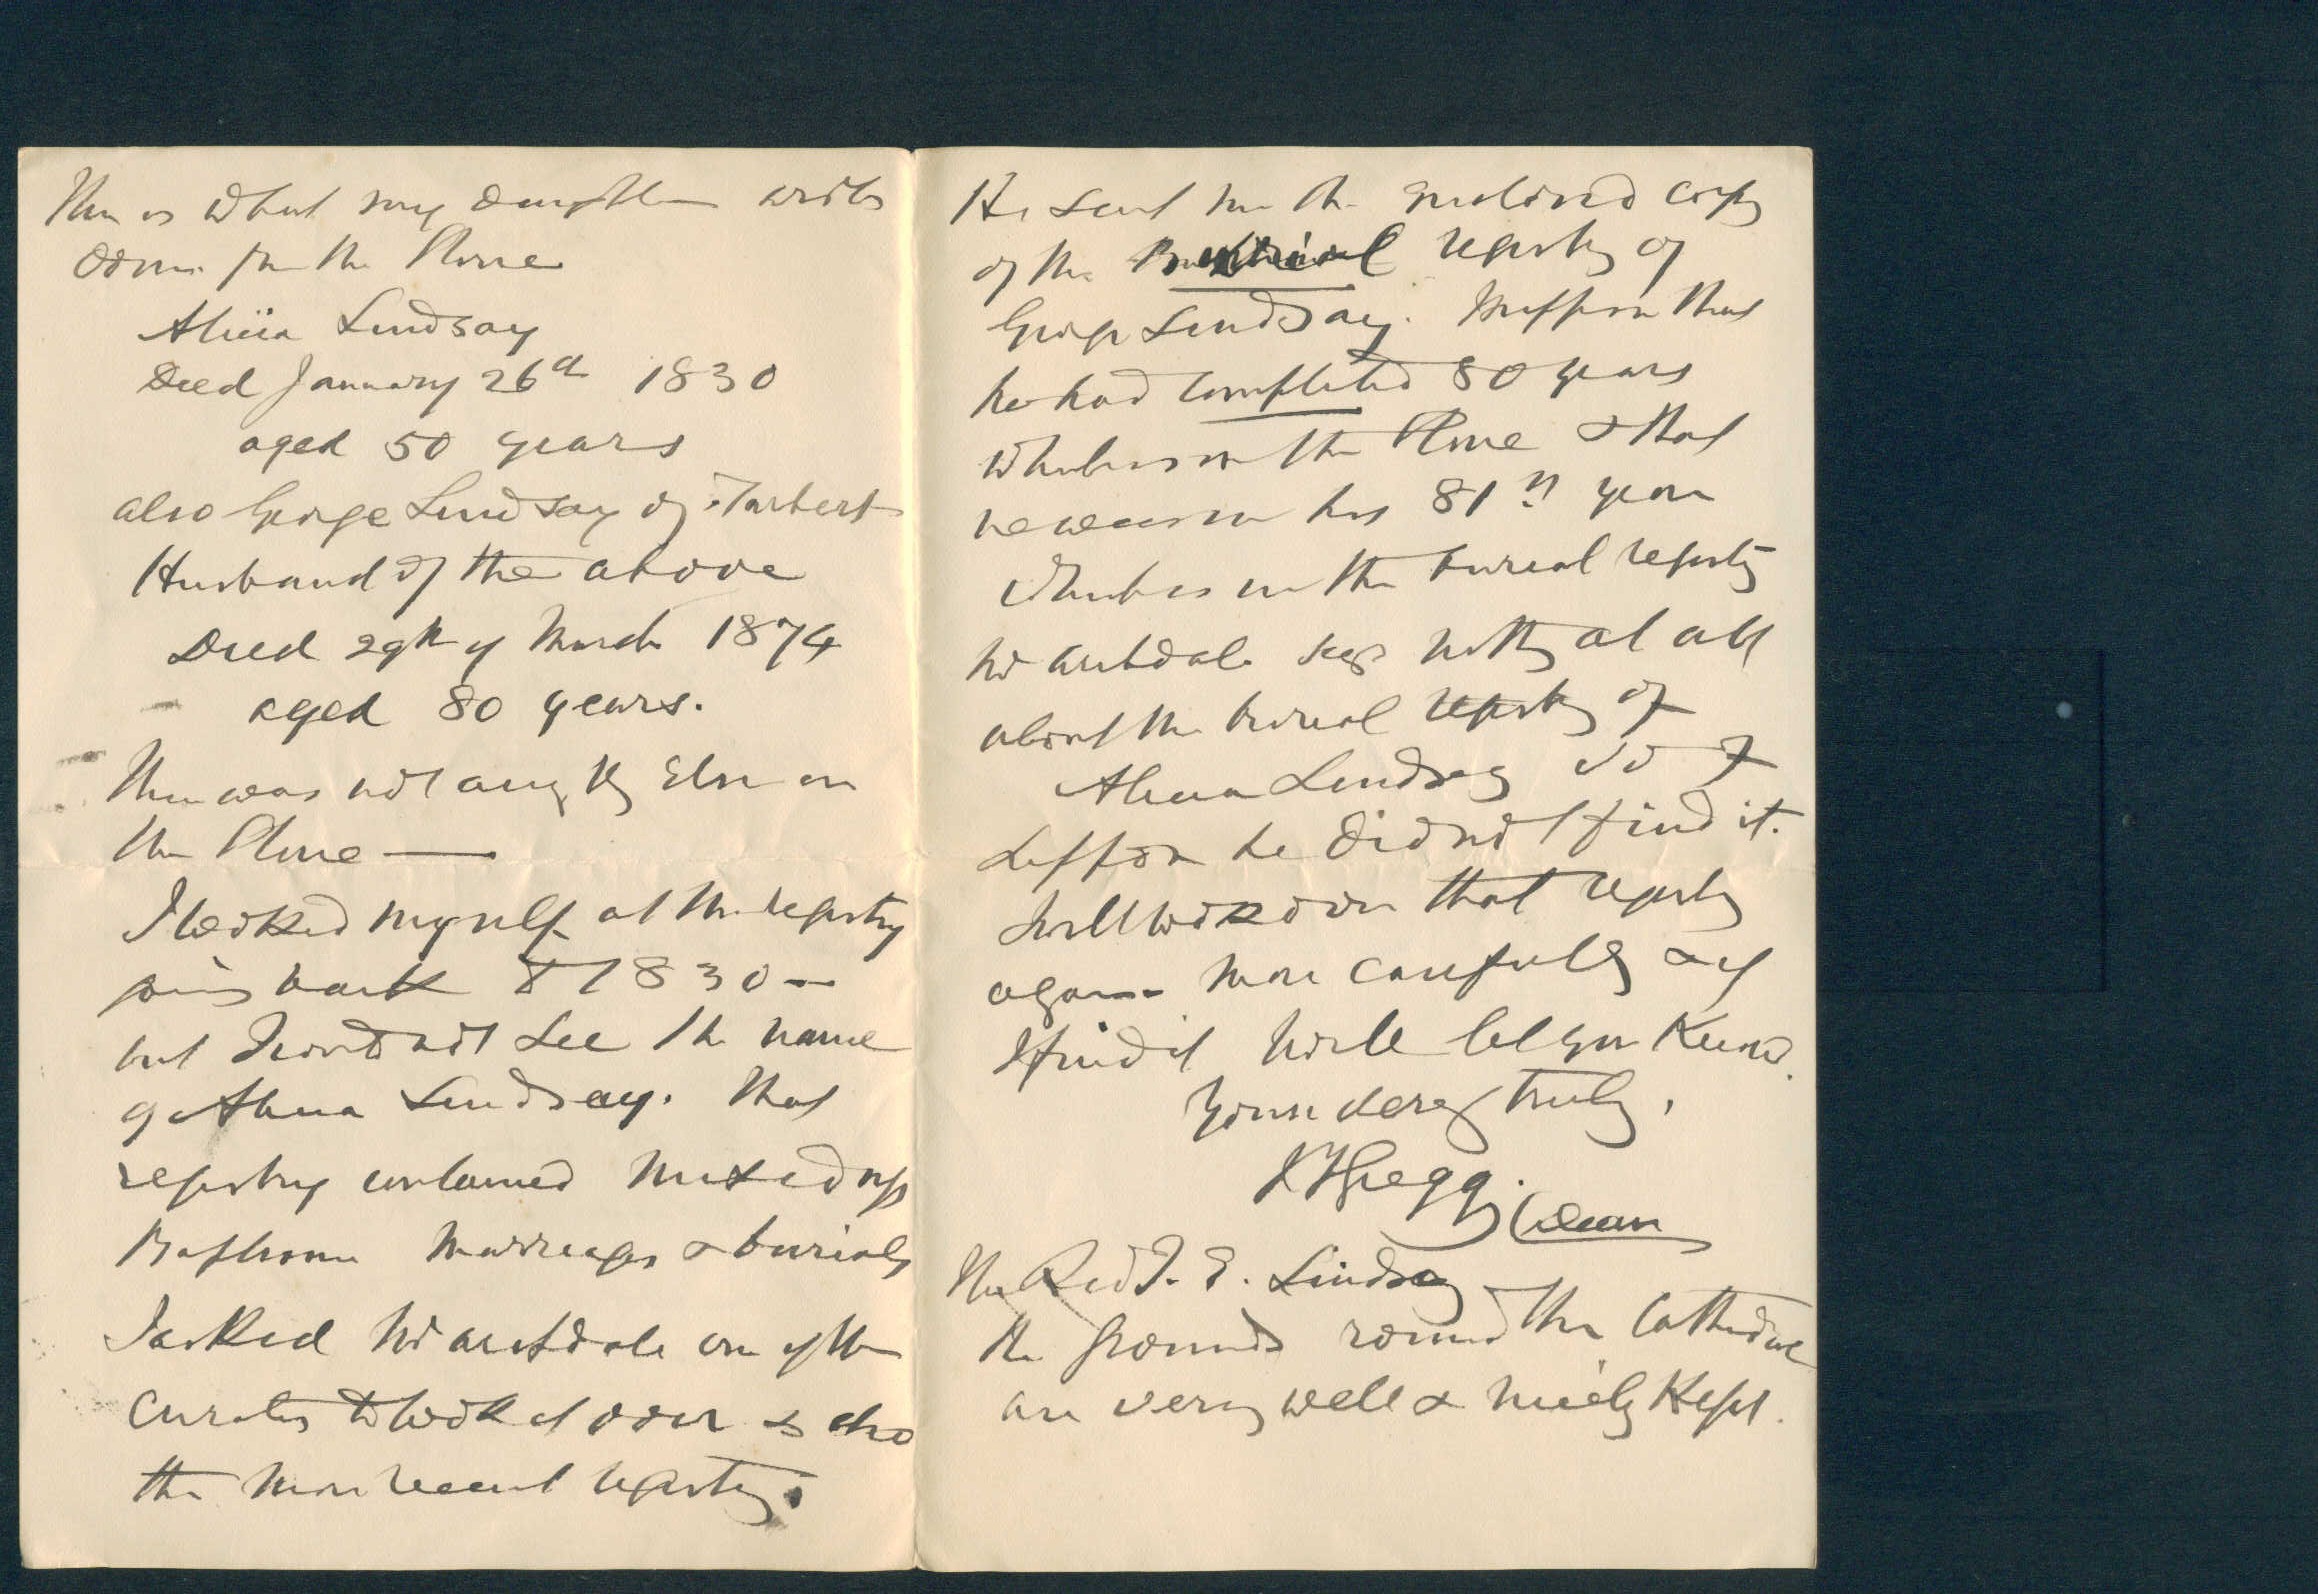 This is what my daughter writes
down from the Stone
Alicia Lindsay
Died January 26th 1830
aged 50 years
also George Lindsay of Tarbert
Husband of the above
Died 29th of March 1874
aged 80 years.
There was not anything Else on
the Stone —
I looked myself at the registry
going back to 1830 —
but I could not see the name
of Alicia Lindsay. That
registry contained mixed up
Baptisms Marriages & burials
I asked Mr one of the
Curates to look it over & also
the more recent registry.
He sent me the Enclosed copy
of the registry of
George Lindsay. I suppose that
he had completed 80 years
which is on the Stone & that
he was in his 81st year
which is in the burial registry
Mr says nothing at all
about the burial registry of
Alicia Lindsay so I
suppose he did not find it.
I will look over that registry
again more carefully & if
I find it I will let you Know.
Yours very truly,
Gregg, (Dean
The Revd J. E. Lindsay
The Grounds round the Cathedral
are very well & nicely Kept.